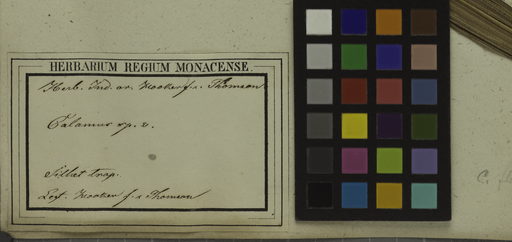 HERBARIUM REGIUM MONACENSE.
Herb. Ind. or. Hooker f. & Thomson
Calamus sp. 2.
Silhet trop.
Legt. Hooker f. & Thomson